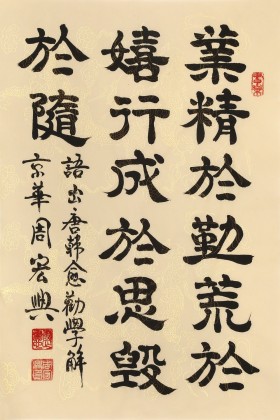 業精於勤荒於
嬉行成於思毀
於隨
語出唐韓愈勸學解
京華周宏興